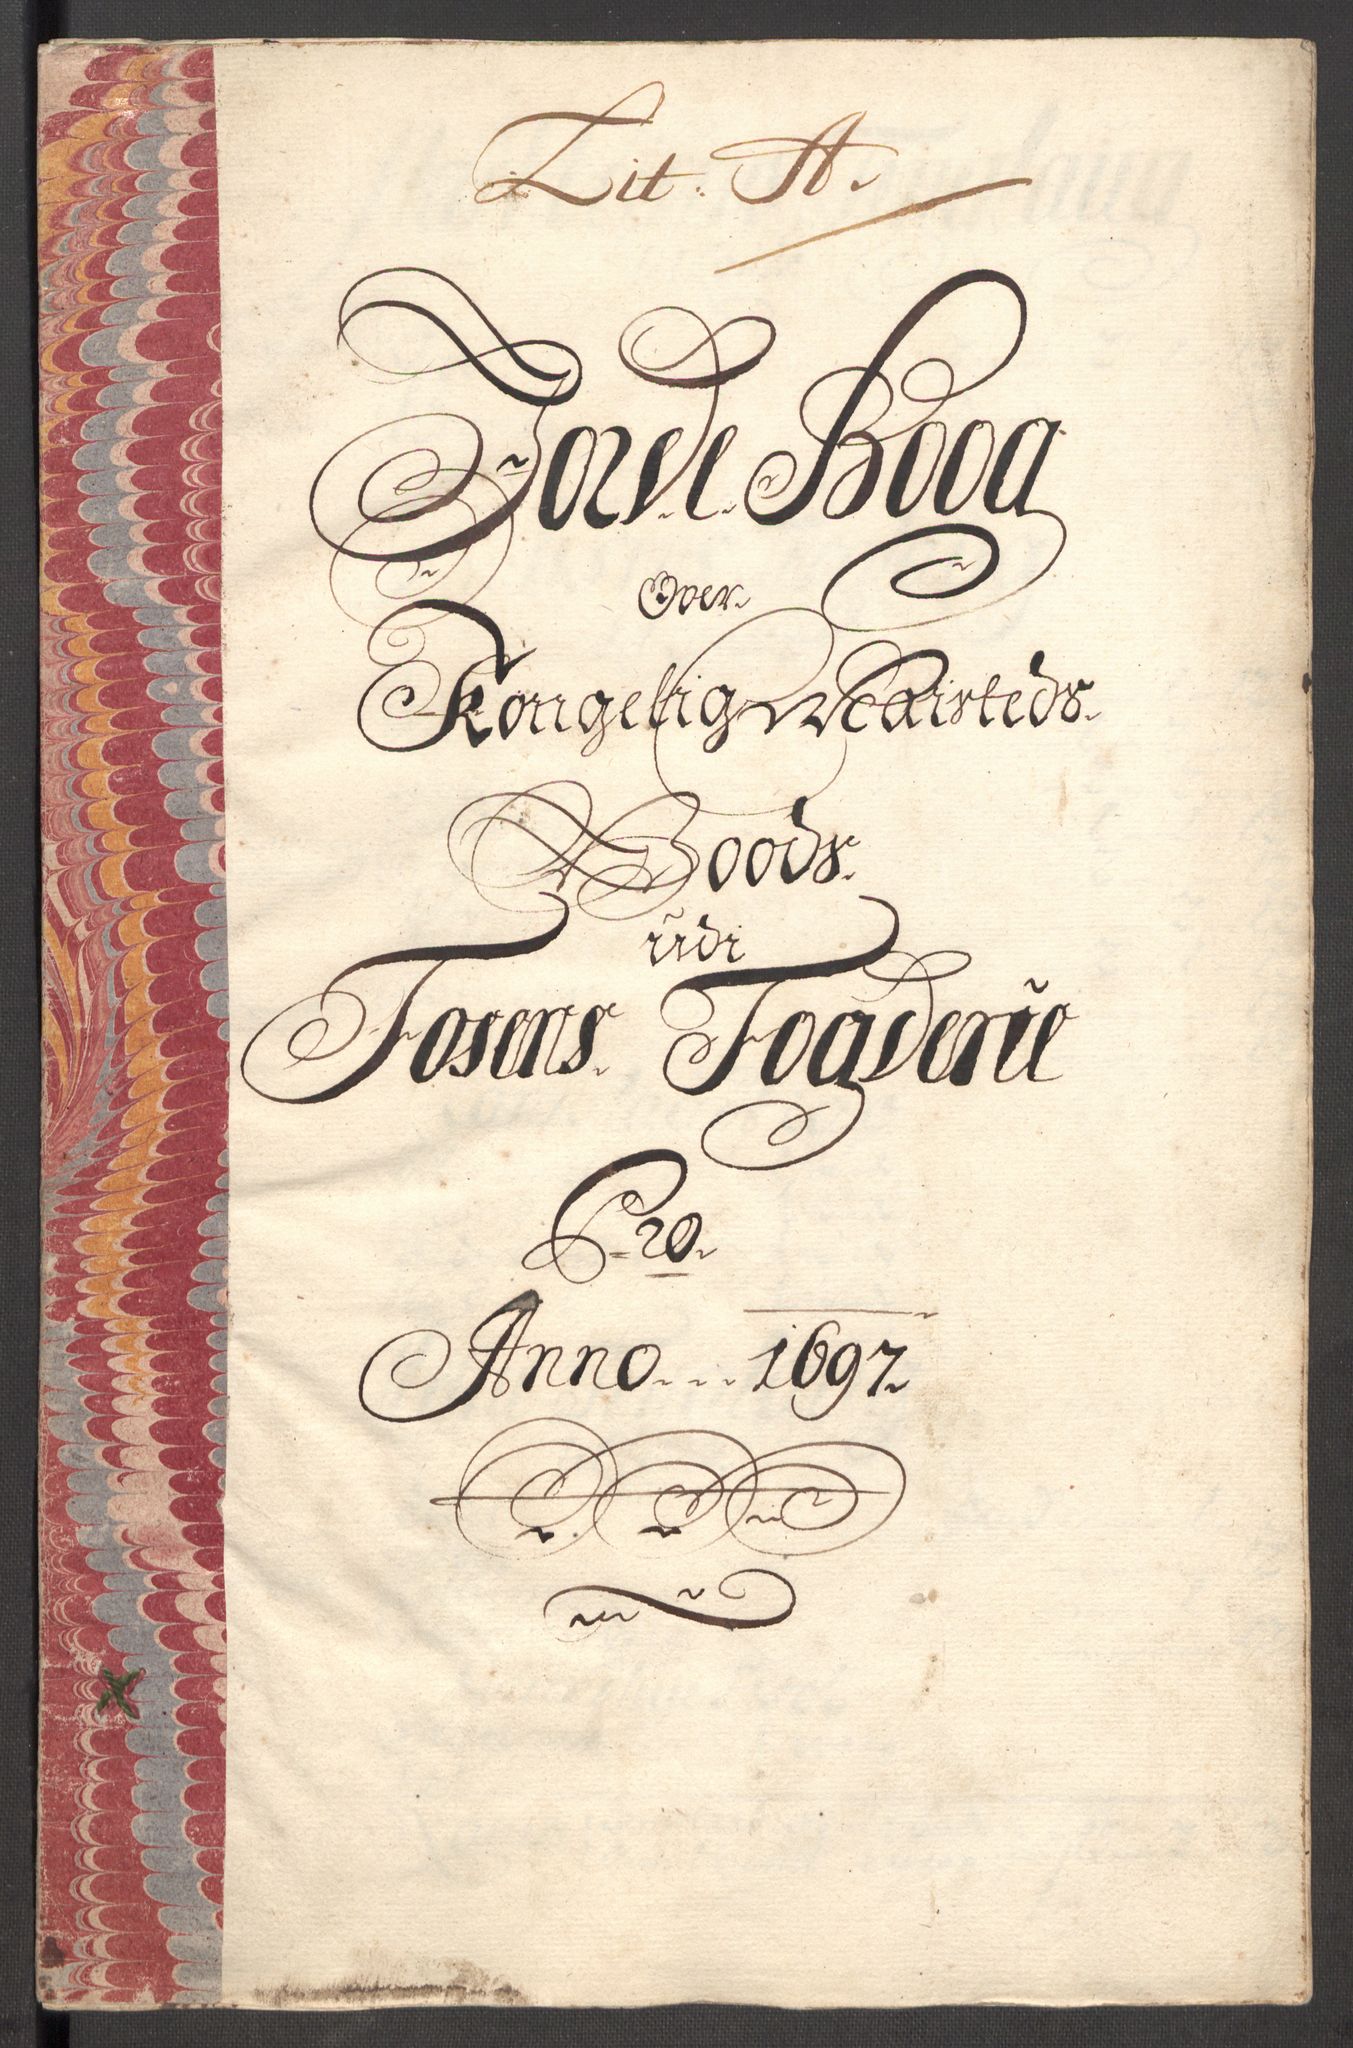 Lit: A.
Jorde Boog
Over
Kongelig Maisteds
Goods
udi
Fosens Fogderie
Pro
Anno 1697